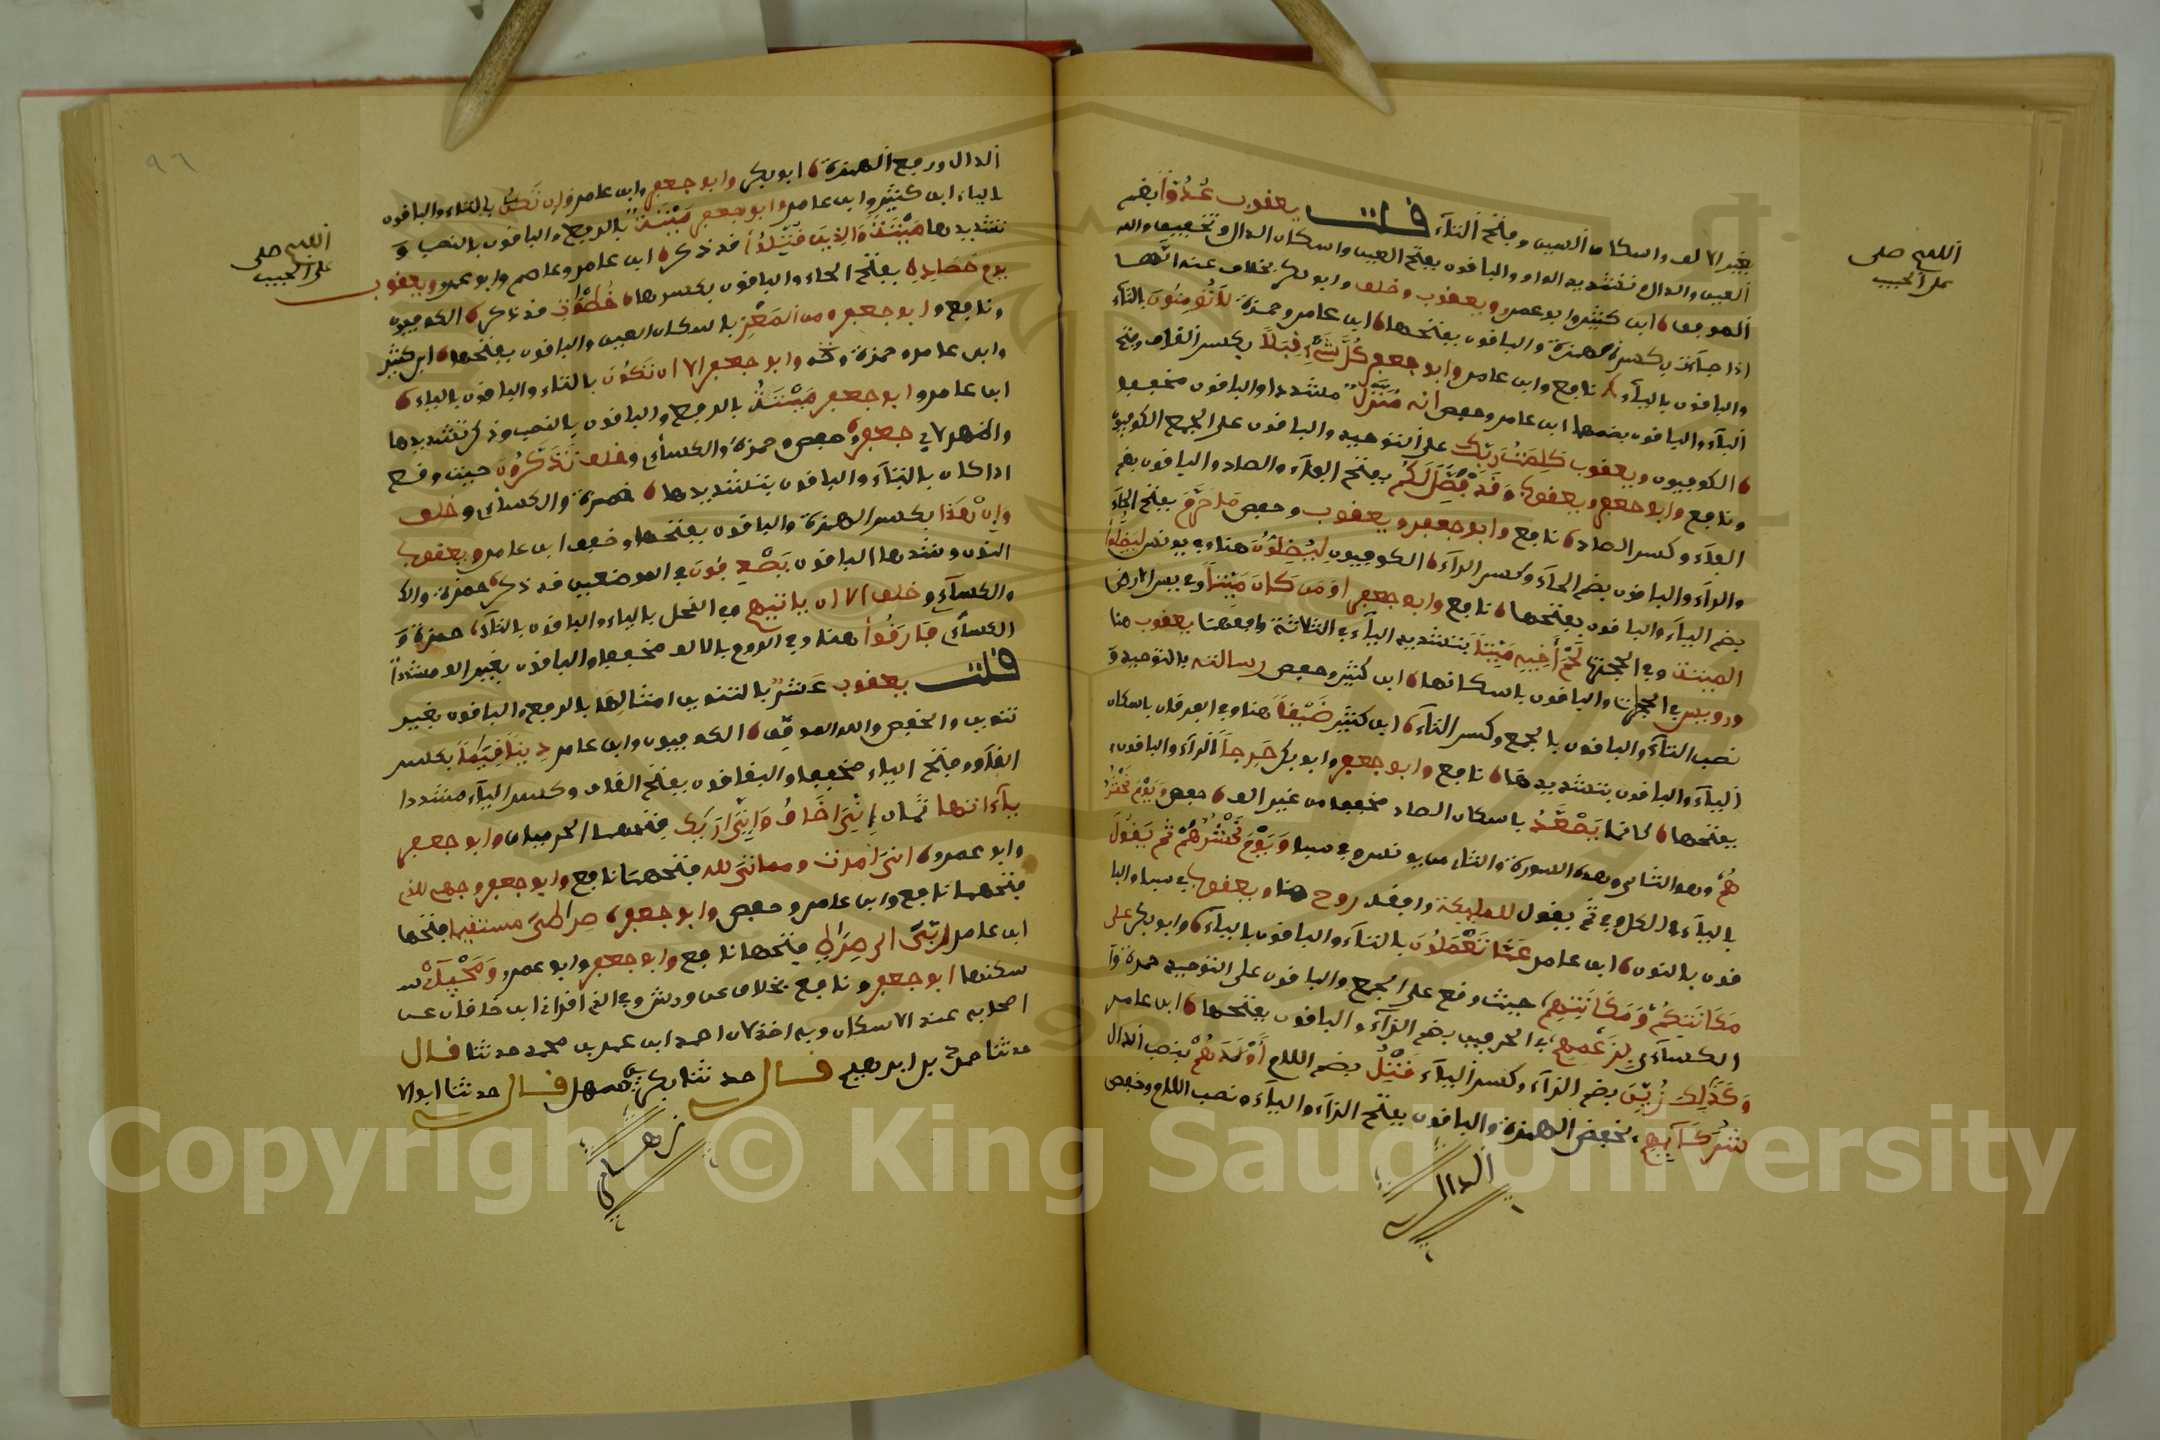 اللهم صلى
على الحبيب
بغير الالف واسكان السين وفتح التاء قلت يعقوب عُدُوّاً بضم
العين والدال وتشديد الواو والباقون بفتح العين واسكان الدال وتخفيف والله
الموفق ابن كثير وابو عمرو ويعقوب وخلف وابو بكر بخلاف عنه انها
اذا جاءت بكسر الهمزة والباقون بفتحها ابن عامر وحمزة لا تومنون بالتاء
والباقون بالياء نافع وابن عامر وابو جعفر كل شيء قبلا بكسر القاف وفتح
الباء والباقون بضمها ابن عامر وحفص انه منزل مشددا والباقون مخففا
الكوفيون ويعقوب كلمت ربك على التوحيد والباقون على الجمع الكوفيون
ونافع وابو جعفر ويعقوب وقد فصل لكم بفتح الفاء والصاد والباقون بضم
الفاء وكسر الصاد نافع وابو جعفر ويعقوب وحفص ما حرم بفتح الحاء
والراء والباقون بضم الحاء وكسر الراء الكوفيون ليضلون هنا وفي يونس ليضلوا
بضم الياء والباقون بفتحها نافع وابو جعفر او من كان ميتا وفي يس الارض
الميتة وفي الحجرات لحم اخيه ميتا بتشديد الياء في الثلاثة وافقهما يعقوب هنا
ورويس في الحجرات والباقون باسكانها ابن كثير وحفص رسالته بالتوحيد و
نصب التاء والباقون بالجمع وكسر التاء ابن كثير ضيقا هنا وفي الفرقان باسكان
الياء والباقون بتشديدها نافع وابو جعفر وابو بكر حرجا الراء والباقون
بفتحها كانما يصعد باسكان الصاد مخففا من غير الف حفص ويوم نحشر
هم وهو الثاني وهذه السورة والثاني من يونس وفي سبا ويوم نحشرهم ثم يقول
بالياء في الكل وفي ثم يقول للمليكة وافقه روح هنا ويعقوب في سبا والبا
قون بالنون ابن عامر عما تعملون بالتاء والباقون بالياء وابو بكر على
مكانتكم ومكانتهم حيث وقع على الجمع والباقون على التوحيد حمزة وا
الكساءي بزعمهم في الحرفين بضم الزاء والباقون بفتحها ابن عامر
وكذلك زين بضم الزاء وكسر الياء قتل بضم اللام اولدهم بنصب الدال
شركآيهم بخفض الهمزة والباقون بفتح الزاء والياء ونصب اللام وخفض
الدال
٩٦
اللهم صلى
على الحبيب
الدال ورفع الهمزة ابو بكر وابو جعفر وابن عامر وان تكن بالتاء والباقون
بالياء ابن كثير وابن عامر وابو جعفر ميتة بالرفع والباقون بالنصب و
تشديدها ميتة والذين قتلوا قد ذكر ابن عامر وعاصم وابو عمرو ويعقوب
يوم حصاده بفتح الحاء والباقون بكسرها خطوات قد ذكر الكوفيون
ونافع وابو جعفر ومن المعز باسكان العين والباقون بفتحها ابن كثير
وابن عامر وحمزة وابو جعفر الا ان تكون بالتاء والباقون بالياء
ابن عامر وابو جعفر ميتة بالرفع والباقون بالنصب وذكر تشديدها
والضم لابي جعفر حفص وحمزة والكساءي وخلف تذكرون حيث وقع
اذا كان بالتاء والباقون بتشديدها حمزة والكساءي وخلف
وان هذا بكسر الهمزة والباقون بفتحها وخفف ابن عامر ويعقوب
النون وشددها الباقون يصدفون في الموضعين قد ذكر حمزة والا
والكساءي وخلف الا ان ياتيهم وفي النحل بالياء والباقون بالتاء حمزة و
الكساءي فارقوا هنا وفي الروم بالالف مخففا والباقون بغير الف مشددا
قلت يعقوب عشر بالتنوين امثالها بالرفع والباقون بغير
تنوين والخفض والله الموفق الكوفيون وابن عامر دينا قيما بكسر
القاف وفتح الياء مخففا والباقون بفتح القاف وكسر الياء مشددا
ياءاتها ثمان اني اخاف واني اريك فتحهما الحرميان وابو جعفر
وابو عمرو اني امرت ومماتي لله فتحهما نافع وابو جعفر وجهي للذ
فتحهما نافع وابن عامر وحفص وابو جعفر صراطي مستقيما فتحها
ابن عامر ربي الى صراط فتحها نافع وابو جعفر وابو عمرو ومحياي
سكنها ابو جعفر ونافع بخلاف عن ورش وفي الذي اقراني ابن خاقان عن
اصحابه عنه الاسكان وبه اخذ لان احمد ابن عمر بن محمد حدثنا قال
حدثنا احمد بن ابراهيم قال حدثنا بكر بن سهل قال حدثنا ابو الا
زهر
Copyright © King Saud University